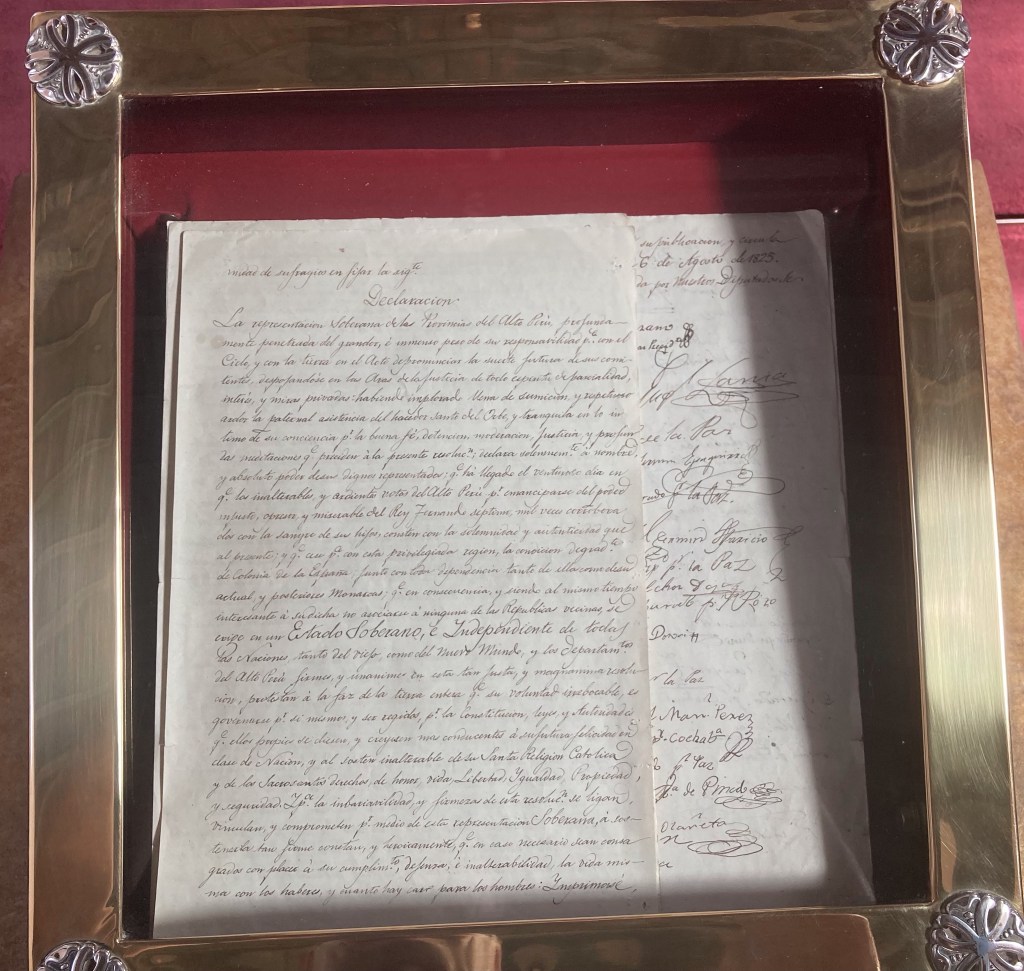 midad de sufragios en fijar la sigte
Declaracion
La representacion Soberana de las Provincias del Alto Perú, profunda-
mente penetrada del grandor, é inmenso peso de su responsavilidad pa. con el
Cielo, y con la tierra en el Acto de pronunciar la suerte futura de sus comi-
tentes, despojandose en las Aras de la Justicia de todo espiritu de parcialidad,
interés, y miras privadas: habiendo implorado llena de sumicion, y respetuoso
ardor la paternal asistencia del hacedor Santo del Orbe, y tranquila en lo in-
timo de su conciencia pr. la buena fé, detencion, moderacion, Justicia, y profun-
das meditaciones qe. preciden á la presente resolucn., declara solemnemte. á nombre,
y absoluto poder de sus dignos representados: qe. há llegado el venturoso dia en
qe. los inalterables, y ardientes votos del Alto Perú pr. emanciparse del poder
injusto, opresor, y miserable del Rey Fernando septimo, mil veces corrobora-
dos con la sangre de sus hijos, consten con la solemnidad y autenticidad que
al presente; y qe. cese pa. con esta privilegiada region, la condicion degradte.
de Colonia de la España, junto con toda dependencia tanto de ella como de su
actual, y posteriores Monarcas: qe. en consecuencia, y siendo al mismo tiempo
interesante á su dicha no asociarse á ninguna de las Republicas vecinas, se
erige en un Estado Soberano, é Independiente de todas
las Naciones, tanto del viejo, como del Nuevo Mundo, y los Departamtos
del Alto Perú, firmes, y unanimes en esta tan justa, y magnanima resolu-
cion, protestan á la faz de la tierra entera qe. su voluntad irrebocable, es
governarse pr. si mismos, y ser regidos, pr. la Constitucion, leyes, y Autoridades
qe. ellos propios se diesen, y creyesen mas conducentes á su futura felicidad en
clase de Nacion, y al sosten inalterable de su Santa Religion Catolica
y de los Sacrosantos derechos, de honor, vida, Libertad, Ygualdad, Propiedad,
y seguridad. Y pa. la inbariavilidad, y firmeza de esta resolucn. se ligan,
vinculan, y comprometen pr. medio de esta representacion Soberana, á sos-
tenerla tan firme, constan, y heroicamente, qe. en caso necesario sean consa-
grados con placer á su cumplimto, defensa, é inalterabilidad, la vida mis-
ma con los haberes, y cuanto hay caro para los hombres: Ynprimase,
su publicacion, y
6 de Agosto de 1825.
da por Nuestros Diputados
Lanza
se la Paz
Eyzaguirre
pr. la Paz.
Fermin Aparicio
pr. la Paz
pr. la Paz
Mari Perez
Cochaba
pr. Paz
de Pinedo
Olañeta